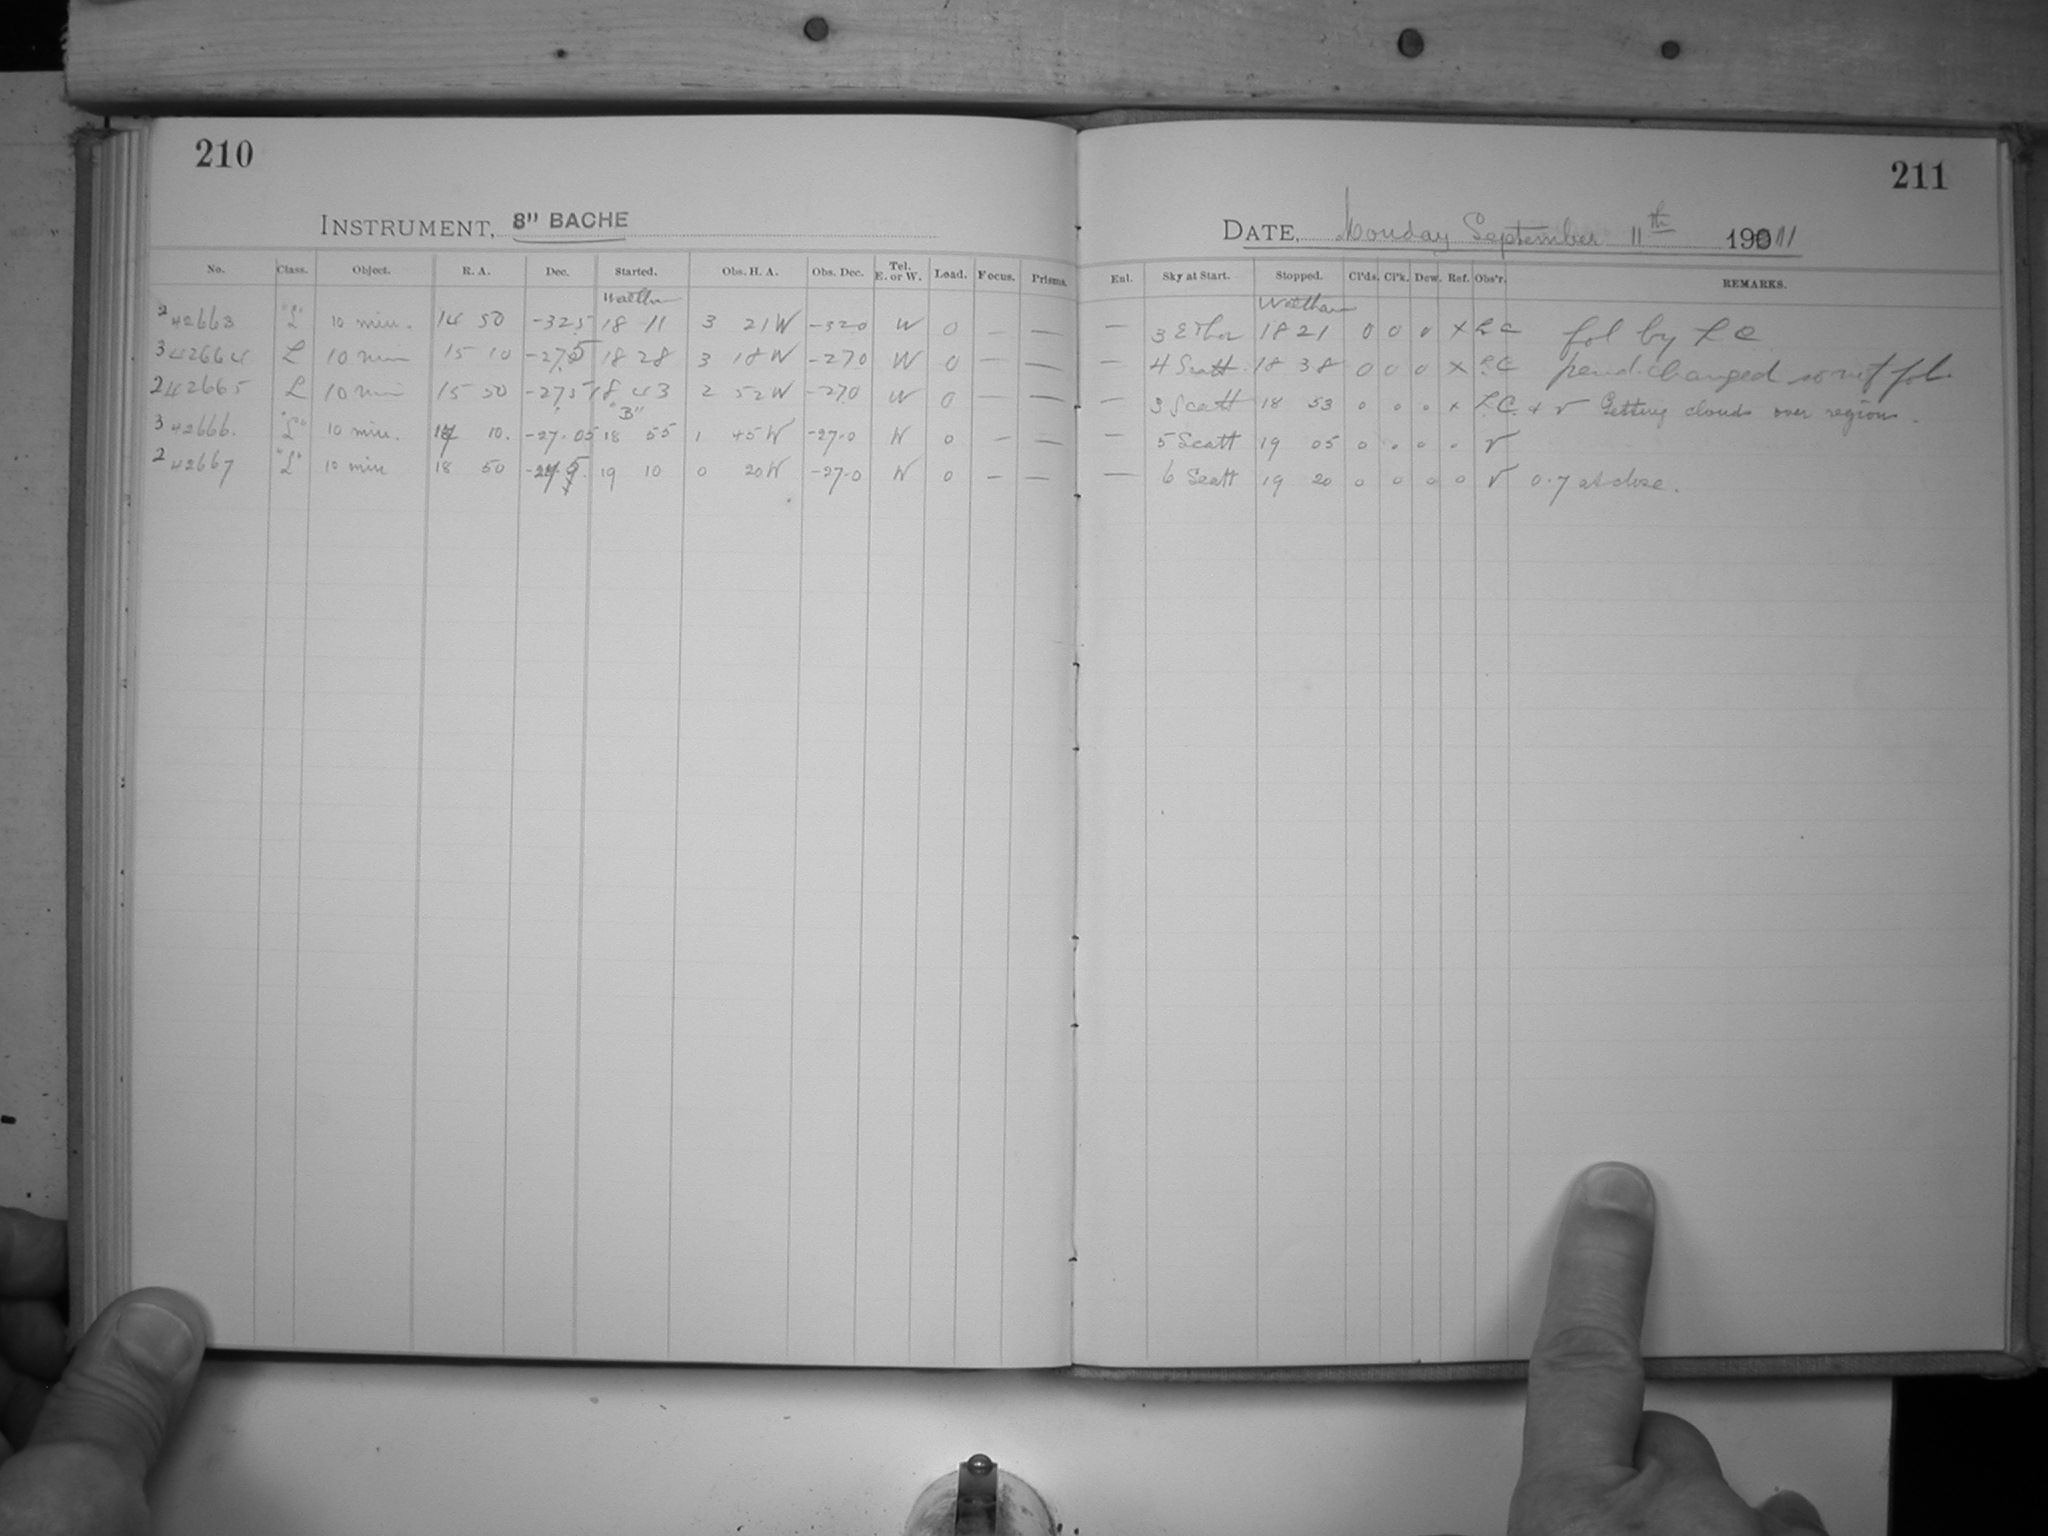 210
INSTRUMENT, 8" BACHE
No. Class. Object. R. A. Dec. Started. Obs. H. A. Obs. Dec. Tel. E. or W. Load. Focus. Prisms.
Waltham
2 42663 "L" 10 min. 14 50 -32.5 18 11 3 21 W -32.0 W 0 — —
3 42664 L 10 min 15 10 18 28 3 18 W -27.0 W 0 — —
2 42665 L 10 min 15 50 -27.5 18 43 2 52 W -27.0 W 0 — —
"B"
3 42666. "L" 10 min. 10. 18 55 1 45 W -27.0 W 0 — —
2 42667 "L" 10 min 18 50 19 10 0 20 W -27.0 W 0 — —
211
DATE, Monday September 11th 1911
Enl. Sky at Start. Stopped. Cl'ds. Cl'k. Dew. Ref. Obs'r. REMARKS.
Waltham
— 3 18 21 0 0 0 X L C fol by L C
— 4 Scatt. 18 38 0 0 0 X L C pend. changed so not fol.
— 3 Scatt 18 53 0 0 0 x L C. + V Getting clouds over region.
— 5 Scatt 19 05 0 0 0 0 V
— 6 Scatt 19 20 0 0 0 0 V 0.7 at close.